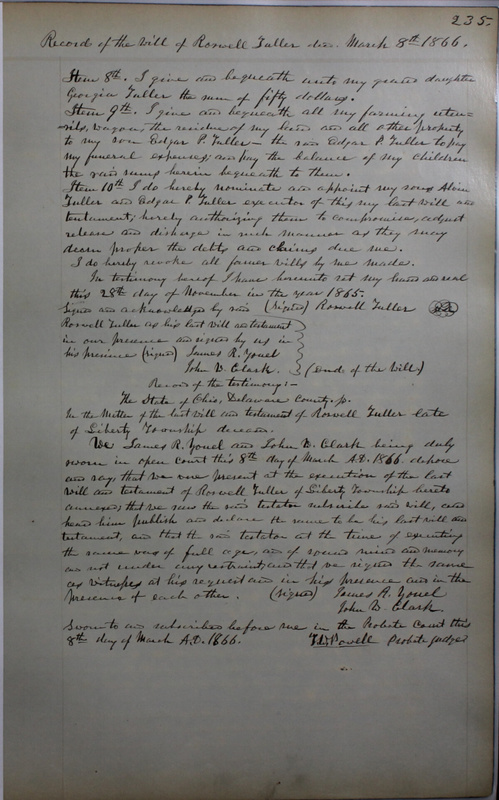 235.
Record of the Will of Roswell Fuller dec. March 8th 1866.
Item 8th. I give and bequeath unto my grand daughter
Georgia Fuller the sum of fifty dollars.
Item 9th. I give and bequeath all my farming uten=
sils, wagon, the residue of my land and all other property
to my son Edgar P. Fuller – the said Edgar P. Fuller to pay
my funeral expenses, and pay the balance of my children
the said sums herein bequeath to them.
Item 10th I do hereby nominate and appoint my sons Alvin
Fuller and Edgar P. Fuller executor of this my last will and
testament; hereby authorizing them to compromise, adjust
release and disharge in such manner as they may
deem proper the debts and claims due me.
I do hereby revoke all former wills by me made.
In testimony hereof I have hereunto set my hand and seal
this 28th day of November in the year 1865.
Signed and acknowledged by said (signed) Roswell Fuller seal
Roswell Fuller as his last will and testament
in our presence and signed by us in
his presence (signed) James R. Youel
John V. Clark. (End of the Will)
Record of the testimony:–
The State of Ohio, Delaware County, ss.
In the Matter of the last will and testament of Roswell Fuller late
of Liberty Township deceased.
We James R. Youel and John V. Clark being duly
sworn in open court this 8th day of March A.D. 1866. depose
and say, that we were present at the execution of the last
will and testament of Roswell Fuller of Liberty Township hereto
annexed; that we saw the said testator subscribe said will, and
heard him publish and declare the same to be his last will and
testament, and that the said testator at the time of executing
the same was of full age, and of sound mind and memory
and not under any restraint, and that we signed the same
as witnesses at his request and in his presence and in the
presence of each other. (signed) James R. Youel
John V. Clark.
Sworn to and subscribed before me in the Probate Court this
8th day of March A.D. 1866. T.W. Powell Probate Judge